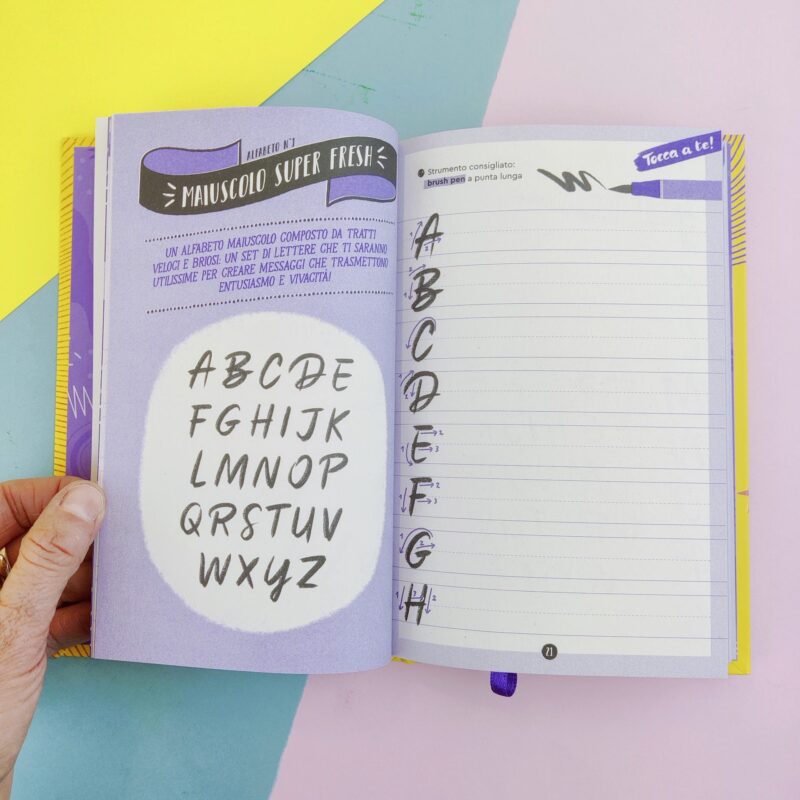 ALFABETO
MAIUSCOLO SUPER FRESH
UN ALFABETO MAIUSCOLO COMPOSTO DA TRATTI
VELOCI E BRIOSI: UN SET DI LETTERE CHE TI SARANNO
UTILISSIME PER CREARE MESSAGGI CHE TRASMETTONO
ENTUSIASMO E VIVACITÀ!
A B C D E
F G H I J K
L M N O P
Q R S T U V
W X Y Z
Tocca a te!
Strumento consigliato:
brush pen a punta lunga
A
B
C
D
E
F
G
H
21